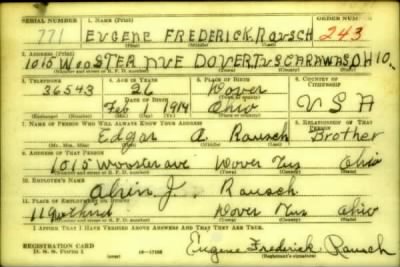 SERIAL NUMBER 1. NAME (Print) ORDER NUMBER
771 EUGENE FREDERICK RAUSCH 243
(First) (Middle) (Last)
2. ADDRESS (Print)
1015 WOOSTER AVE DOVER TUSCARAWAS OHIO
(Number and street or R. F. D. number) (Town) (County) (State)
3. TELEPHONE 4. AGE IN YEARS 5. PLACE OF BIRTH 6. COUNTRY OF CITIZENSHIP
36543 26 Dover
DATE OF BIRTH (Town or county)
Feb 1914 Ohio U S A
(Exchange) (Number) (Mo.) (Day) (Yr.) (State or country)
7. NAME OF PERSON WHO WILL ALWAYS KNOW YOUR ADDRESS 8. RELATIONSHIP OF THAT PERSON
Edgar A. Rausch Brother
(Mr., Mrs., Miss) (First) (Middle) (Last)
9. ADDRESS OF THAT PERSON
1015 Wooster ave Dover Tus Ohio
(Number and street or R. F. D. number) (Town) (County) (State)
10. EMPLOYER'S NAME
Alvin J. Rausch
11. PLACE OF EMPLOYMENT OR BUSINESS
Dover Tus Ohio
(Number and street or R. F. D. number) (Town) (County) (State)
I AFFIRM THAT I HAVE VERIFIED ABOVE ANSWERS AND THAT THEY ARE TRUE.
REGISTRATION CARD
D. S. S. Form 1 16-17105 Eugene Frederick Rausch
(Registrant's signature)